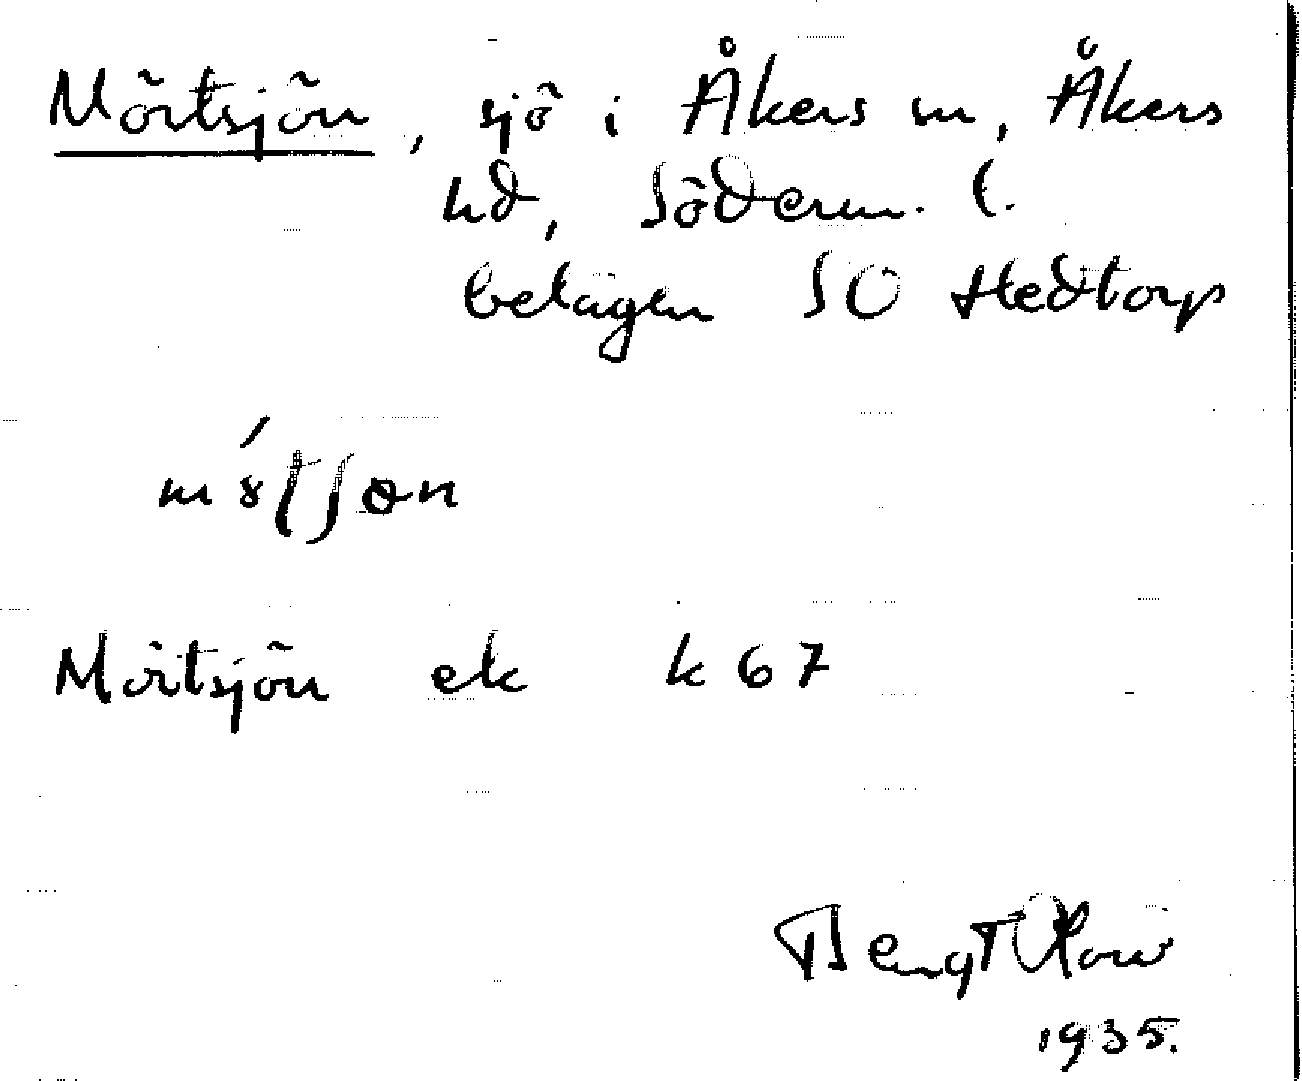 Mörtsjön, sjö i Åkers sn, Åkers
hd, Söderm. l.
belägen SO Hedtorp
Mörtsjön ek k 67
Bengt
1935.